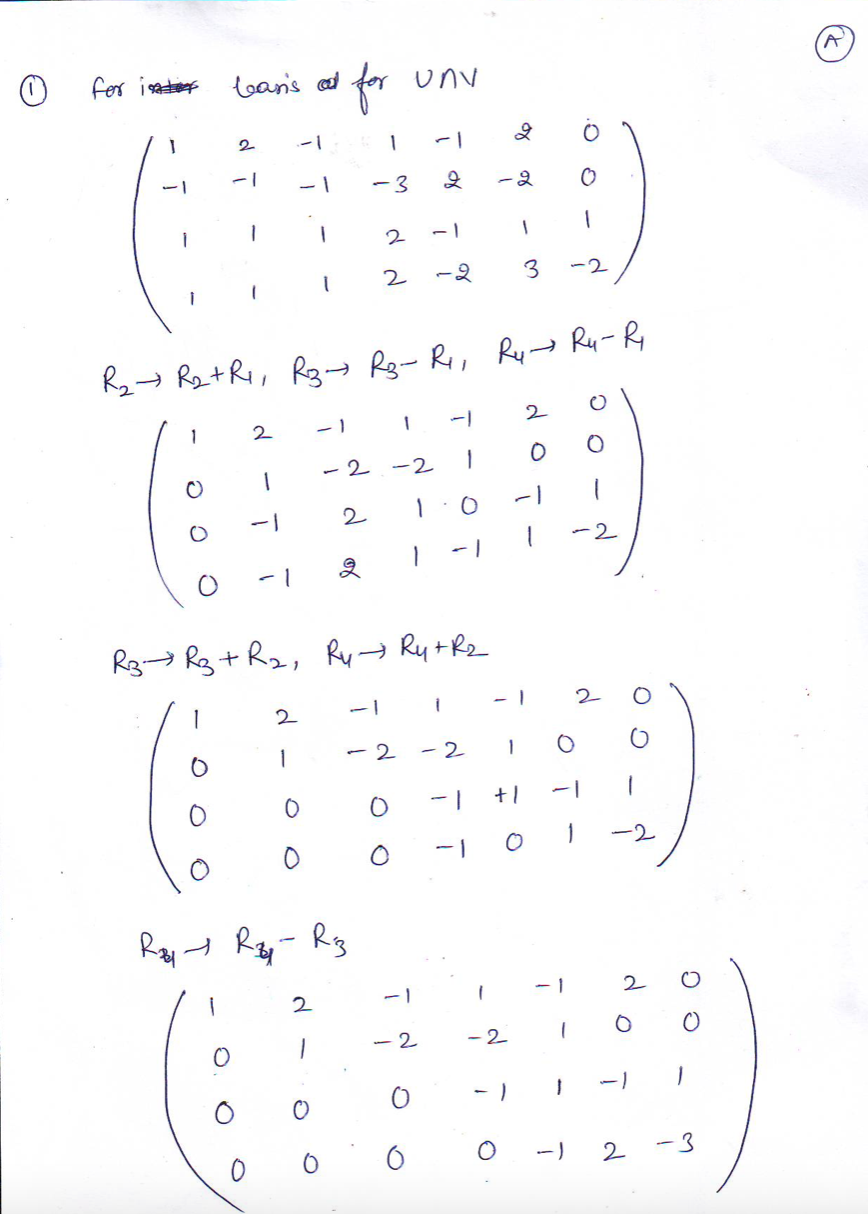 A
① for basis for U∩V
1 2 -1 1 -1 2 0
-1 -1 -1 -3 2 -2 0
1 1 1 2 -1 1 1
1 1 1 2 -2 3 -2
R₂→ R₂+R₁, R₃→ R₃-R₁, R₄→ R₄-R₁
1 2 -1 1 -1 2 0
0 1 -2 -2 1 0 0
0 -1 2 1 0 -1 1
0 -1 2 1 -1 1 -2
R₃→ R₃+R₂, R₄→ R₄+R₂
1 2 -1 1 -1 2 0
0 1 -2 -2 1 0 0
0 0 0 -1 +1 -1 1
0 0 0 -1 0 1 -2
R₄→ R₄-R₃
1 2 -1 1 -1 2 0
0 1 -2 -2 1 0 0
0 0 0 -1 1 -1 1
0 0 0 0 -1 2 -3